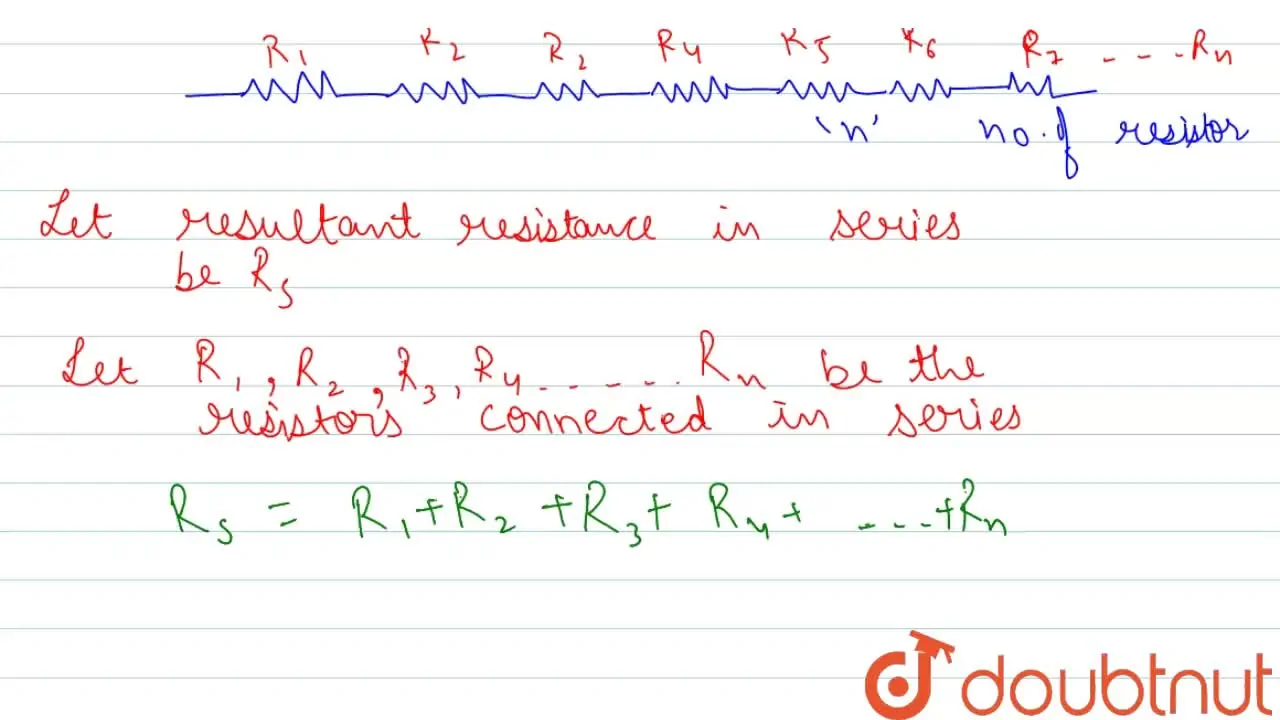 R1 R2 R2 R4 R5 R6 R7 ---Rn
'n' no. of resistor
Let resultant resistance in series
be Rs
Let R1, R2, R3, R4------Rn be the
resistors connected in series
Rs = R1+R2 +R3+ R4+ ----+Rn
doubtnut